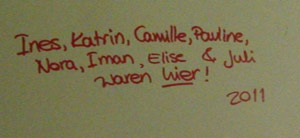 Ines, Katrin, Camille, Pauline,
Nora, Iman, Elise & Juli
waren hier!
2011